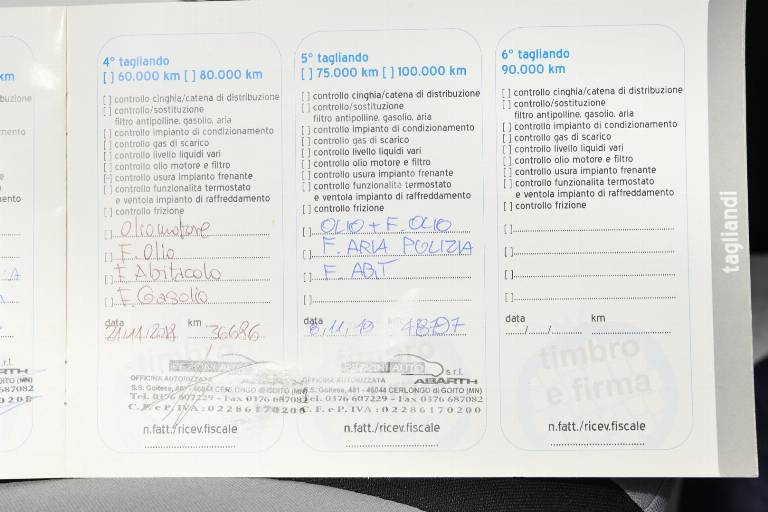 km
buzione
mento
ento
A
r.l.
ARTH
OITO (MN)
687082
0200
4° tagliando
[ ] 60.000 km [ ] 80.000 km
[ ] controllo cinghia/catena di distribuzione
[ ] controllo/sostituzione
filtro antipolline, gasolio, aria
[ ] controllo impianto di condizionamento
[ ] controllo gas di scarico
[ ] controllo livello liquidi vari
[ ] controllo olio motore e filtro
[ ] controllo usura impianto frenante
[ ] controllo funzionalità termostato
e ventola impianto di raffreddamento
[ ] controllo frizione
[ ] Olio motore
[ ] F. Olio
[ ] F. Abitacolo
[ ] F. Gasolio
data km
21/11/2018 36686
PEZZINI AUTO
OFFICINA AUTORIZZATA
S.S. Goitese, 481 - 46044 CERLONGO di GOITO (MN)
Tel. 0376 607229 - Fax 0376 687082
C.F. e P. IVA: 02286170200
n.fatt./ricev.fiscale
5° tagliando
[ ] 75.000 km [ ] 100.000 km
[ ] controllo cinghia/catena di distribuzione
[ ] controllo/sostituzione
filtro antipolline, gasolio, aria
[ ] controllo impianto di condizionamento
[ ] controllo gas di scarico
[ ] controllo livello liquidi vari
[ ] controllo olio motore e filtro
[ ] controllo usura impianto frenante
[ ] controllo funzionalità termostato
e ventola impianto di raffreddamento
[ ] controllo frizione
[ ] OLIO + F. OLIO
[ ] F. ARIA PULIZIA
[ ] F. ABIT
[ ]
data km
11, 19 48707
PEZZINI AUTO s.r.l.
OFFICINA AUTORIZZATA ABARTH
S.S. Goitese, 481 - 46044 CERLONGO di GOITO (MN)
Tel. 0376 607229 - Fax 0376 687082
C.F. e P. IVA: 02286170200
n.fatt./ricev.fiscale
6° tagliando
90.000 km
[ ] controllo cinghia/catena di distribuzione
[ ] controllo/sostituzione
filtro antipolline, gasolio, aria
[ ] controllo impianto di condizionamento
[ ] controllo gas di scarico
[ ] controllo livello liquidi vari
[ ] controllo olio motore e filtro
[ ] controllo usura impianto frenante
[ ] controllo funzionalità termostato
e ventola impianto di raffreddamento
[ ] controllo frizione
[ ]
[ ]
[ ]
[ ]
data km
timbro
e firma
n.fatt./ricev.fiscale
tagliandi